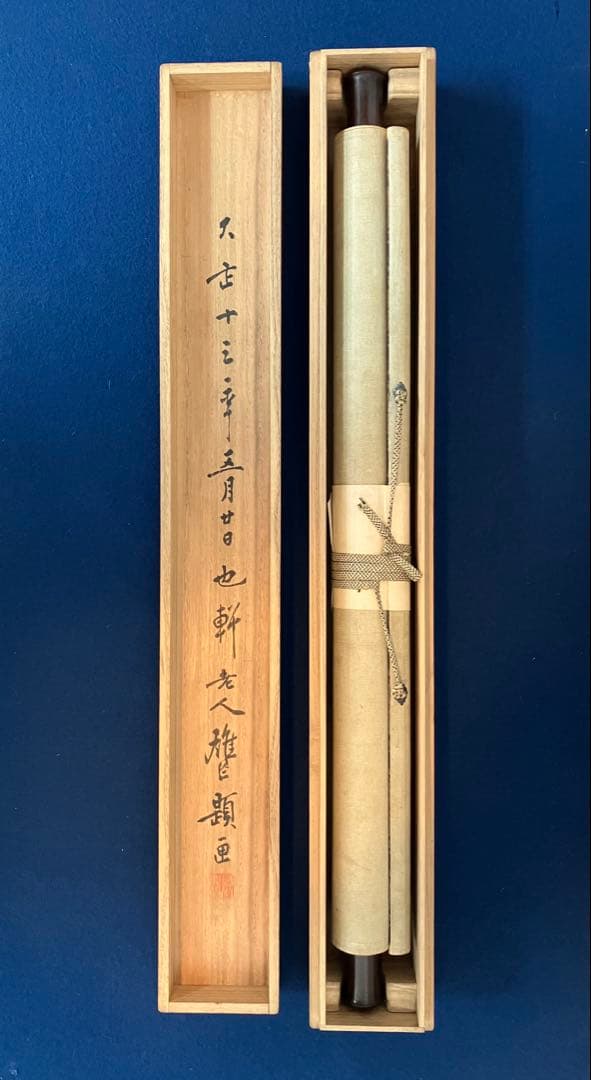 大正十三年五月廿日也軒老人雄題画